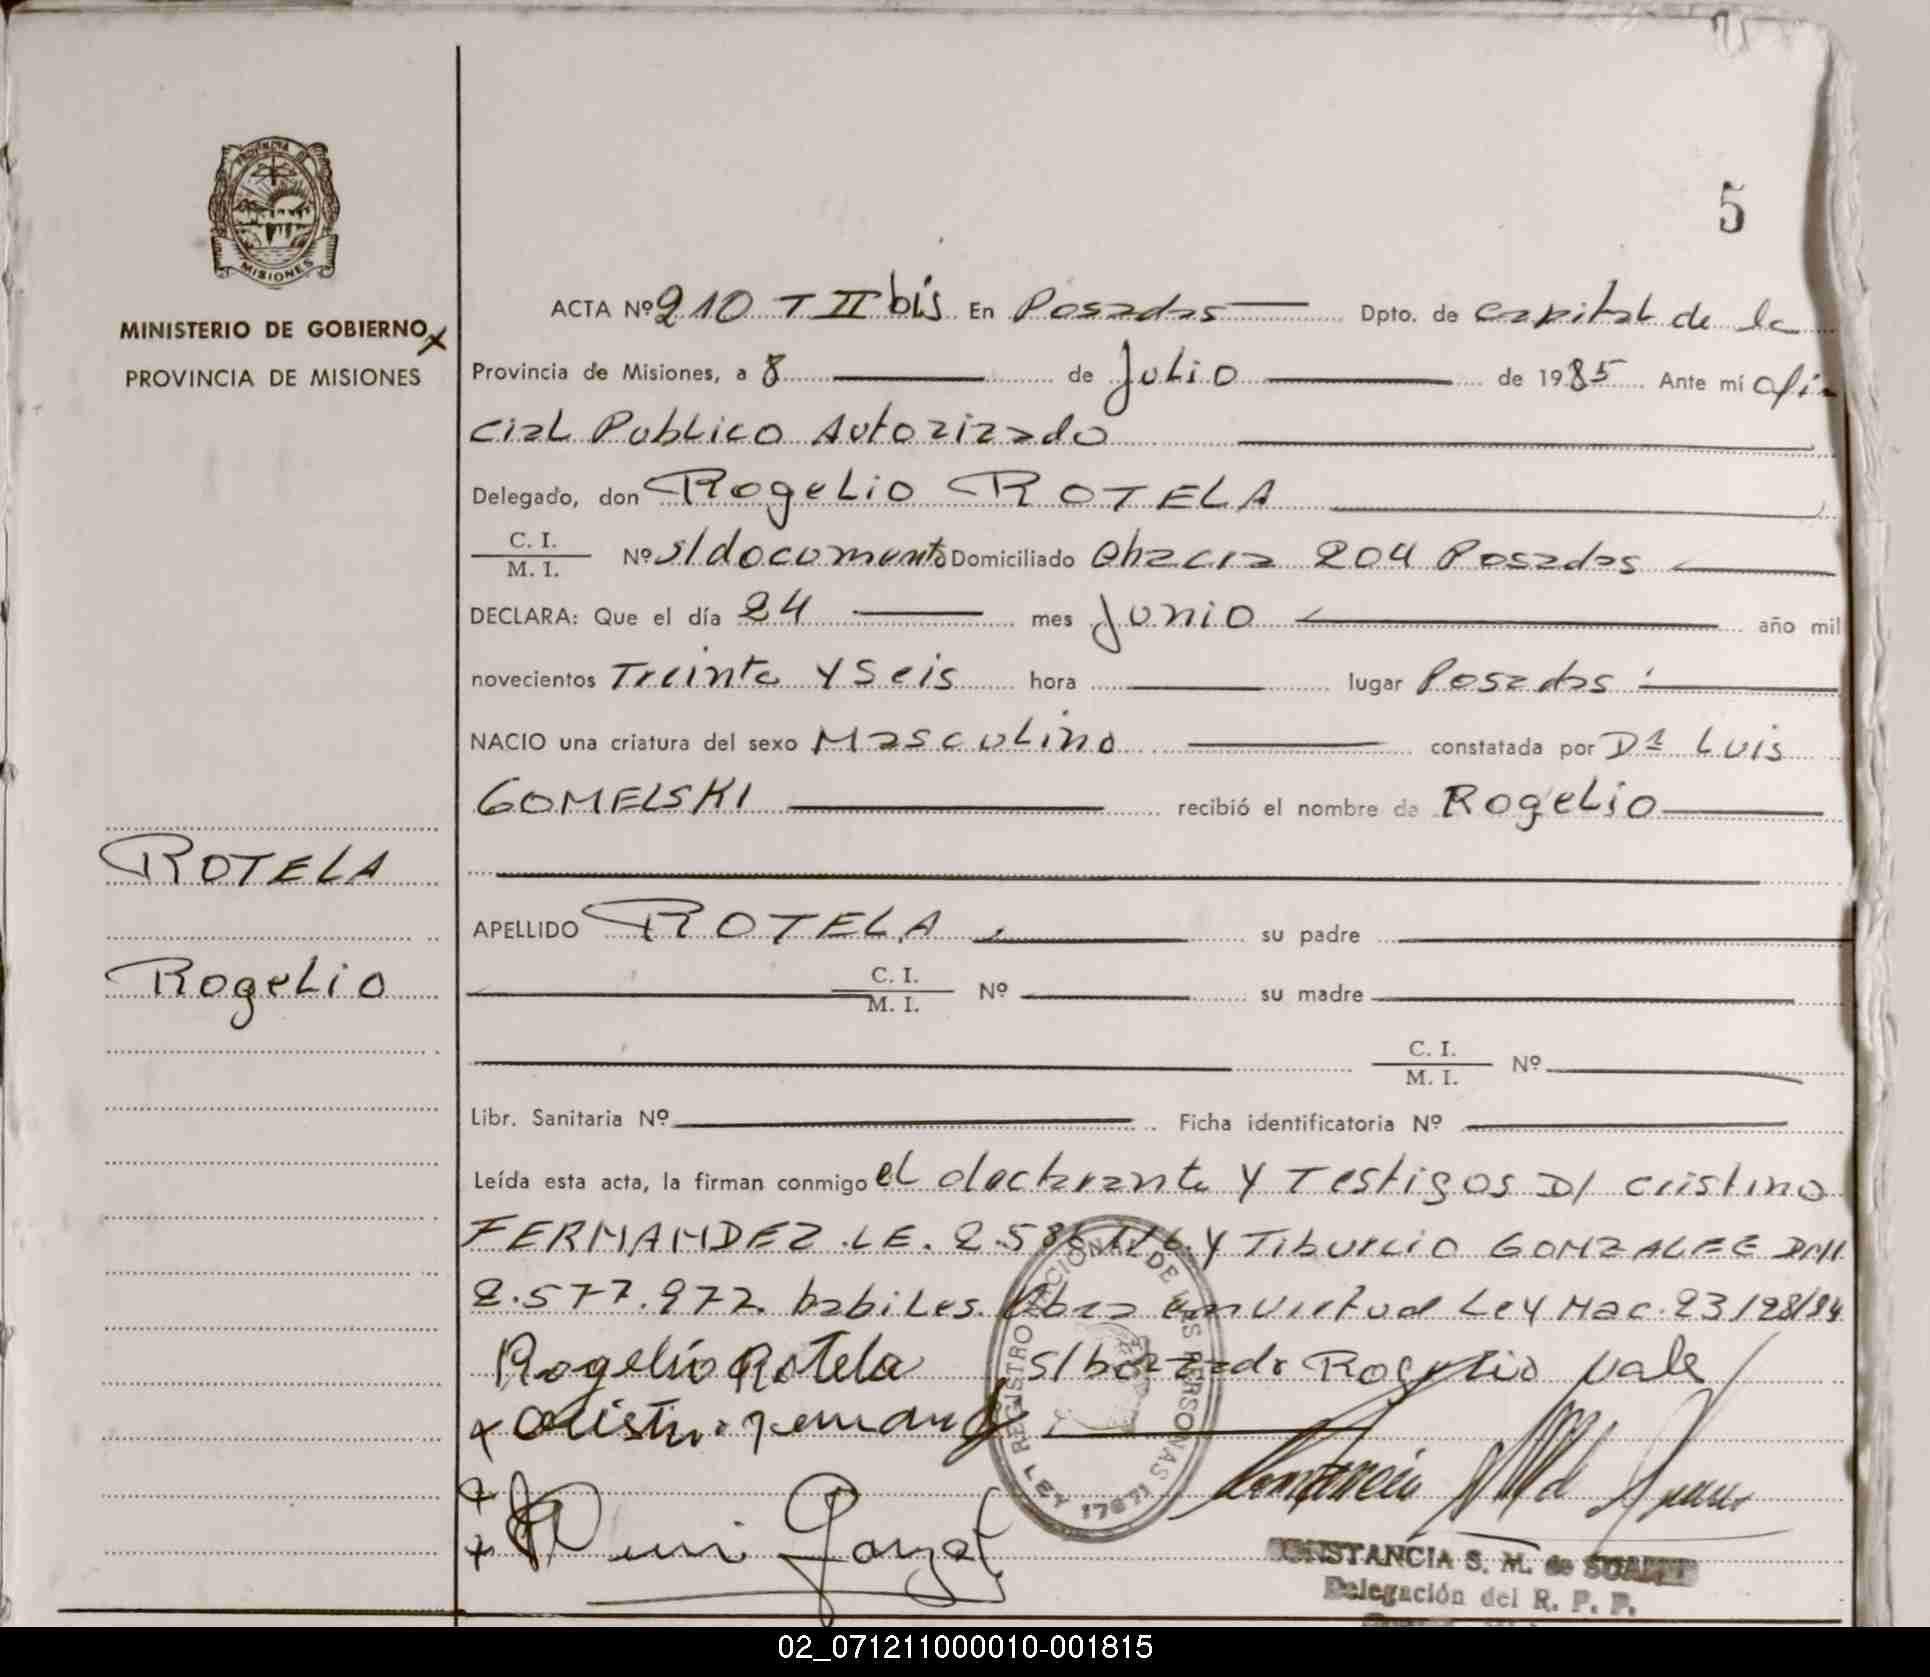 5
PROVINCIA DE
MISIONES
MINISTERIO DE GOBIERNO
PROVINCIA DE MISIONES
ACTA Nº 210 T II bis En Posadas Dpto. de capital de la
Provincia de Misiones, a 8 de Julio de 1985 Ante mí ofi
cial Publico Autorizado
Delegado, don Rogelio ROTELA
C. I.
M. I. Nº s/documento Domiciliado Chacra 204 Posadas
DECLARA: Que el día 24 mes Junio año mil
novecientos Treinta y Seis hora lugar Posadas
NACIO una criatura del sexo Masculino constatada por Dr Luis
GOMELSKI recibió el nombre de Rogelio
ROTELA
APELLIDO ROTELA su padre
Rogelio
C. I.
M. I. Nº su madre
C. I.
M. I. Nº
Libr. Sanitaria Nº Ficha identificatoria Nº
Leída esta acta, la firman conmigo el declarante y Testigos D/ Cristino
FERNANDEZ LE. y Tiburcio GONZALEZ DNI
2.577.972 habiles. Obra en virtud Ley Nac. 23/28/84
Rogelio Rotela s/borrado Rogelio vale
REGISTRO NACIONAL DE LAS PERSONAS
LEY 17671
CONSTANCIA S. M. de
Delegación del R. P. P.
02_071211000010-001815